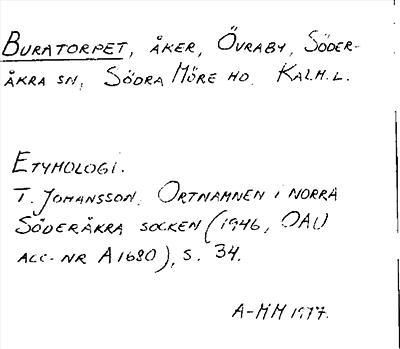 BURATORPET, ÅKER, ÖVRABY, SÖDER-
ÅKRA SN, SÖDRA MÖRE HD. KALM. L.
ETYMOLOGI.
T. JOHANSSON, ORTNAMNEN I NORRA
SÖDERÅKRA SOCKEN (1946, OAU
ACC-NR A1680), S. 34.
A-MM 1977.